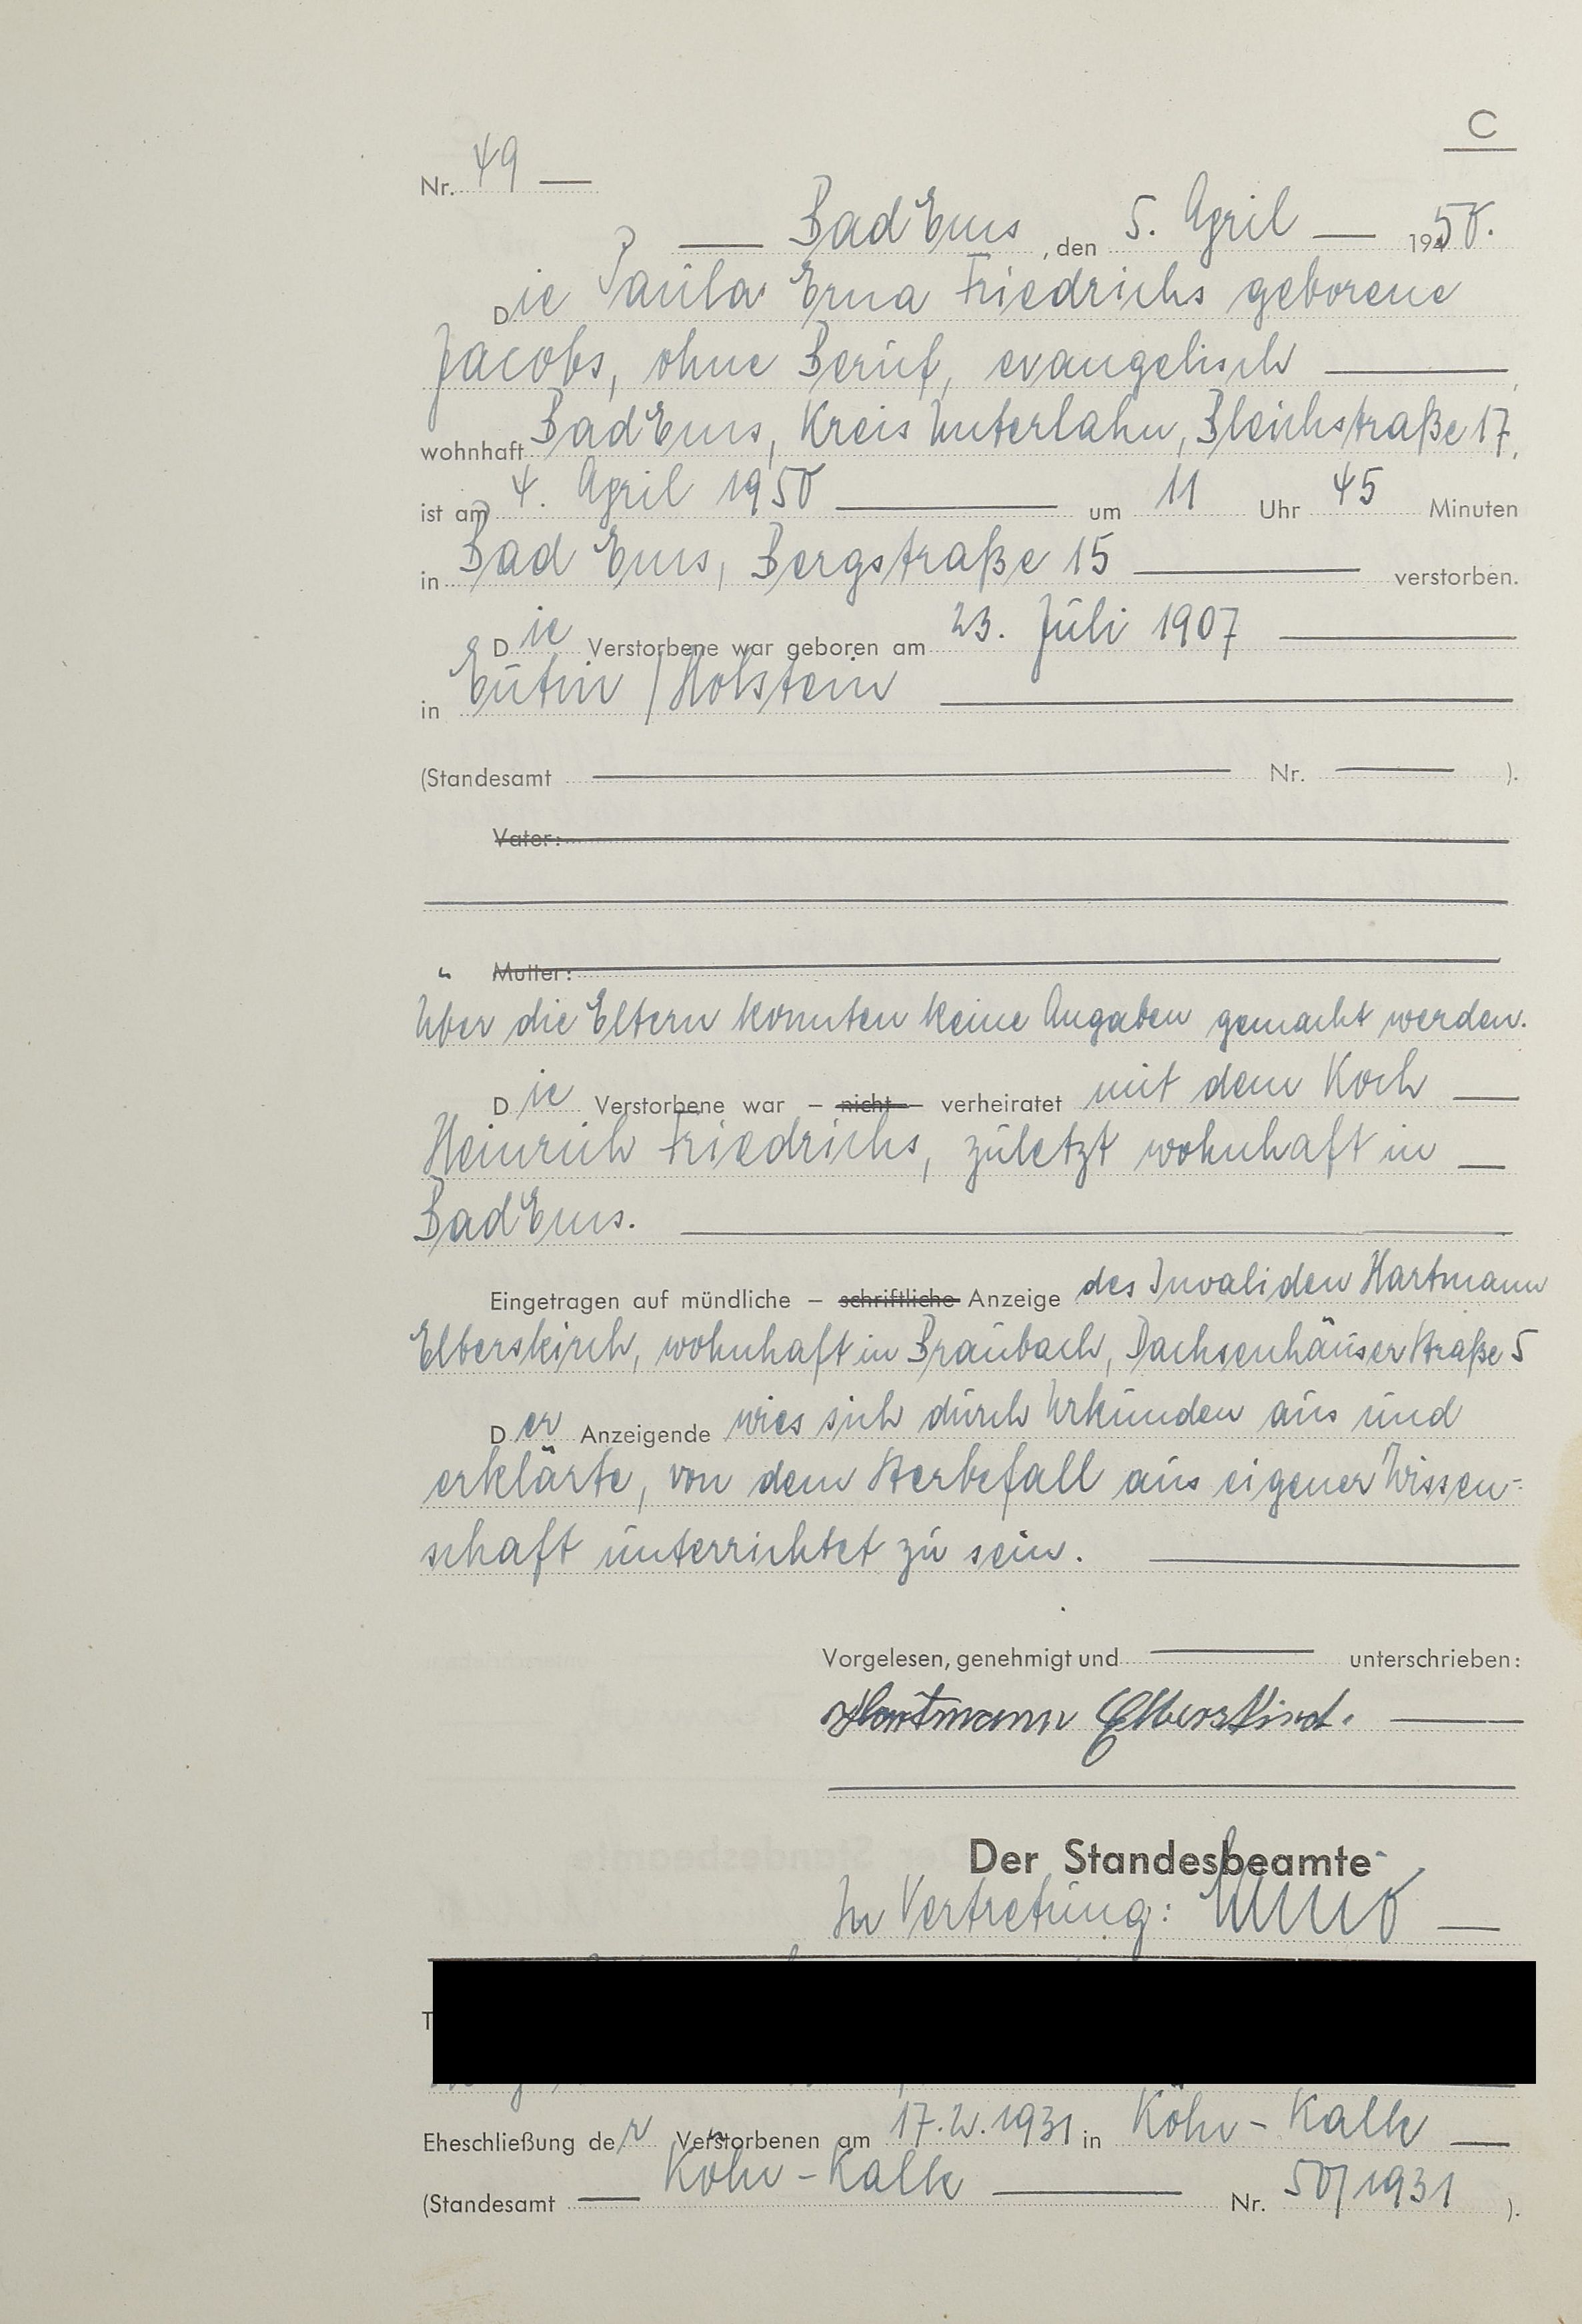 C
Nr. 49 —
— Bad Ems, den 5. April — 1950.
Die Paula Erna Friedrichs geborene
Jacobs, ohne Beruf, evangelisch —,
wohnhaft Bad Ems, Kreis Unterlahn, Bleichstraße 17,
ist am 4. April 1950 — um 11 Uhr 45 Minuten
in Bad Ems, Bergstraße 15 — verstorben.
Die Verstorbene war geboren am 23. Juli 1907 —
in Eutin / Holstein —
(Standesamt — Nr. — ).
Vater: —
Mutter: —
Über die Eltern konnten keine Angaben gemacht werden.
Die Verstorbene war – nicht – verheiratet mit dem Koch —
Heinrich Friedrichs, zuletzt wohnhaft in —
Bad Ems. —
Eingetragen auf mündliche – schriftliche Anzeige des Invaliden Hartmann
Elberskirch, wohnhaft in Braubach, Dachsenhäuser Straße 5
Der Anzeigende wies sich durch Urkunden aus und
erklärte, von dem Sterbefall aus eigener Wissen-
schaft unterrichtet zu sein. —
Vorgelesen, genehmigt und — unterschrieben:
Hartmann Elberskirch. —
Der Standesbeamte
In Vertretung: —
T
Eheschließung der Verstorbenen am 17.2.1931 in Köln-Kalk —
(Standesamt — Köln-Kalk — Nr. 50/1931 ).